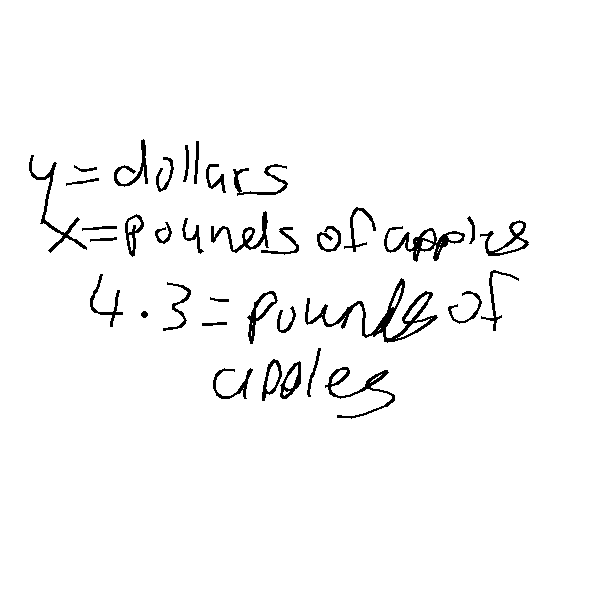 y=dollars
x=pounds of apples
4.3=pounds of
apples